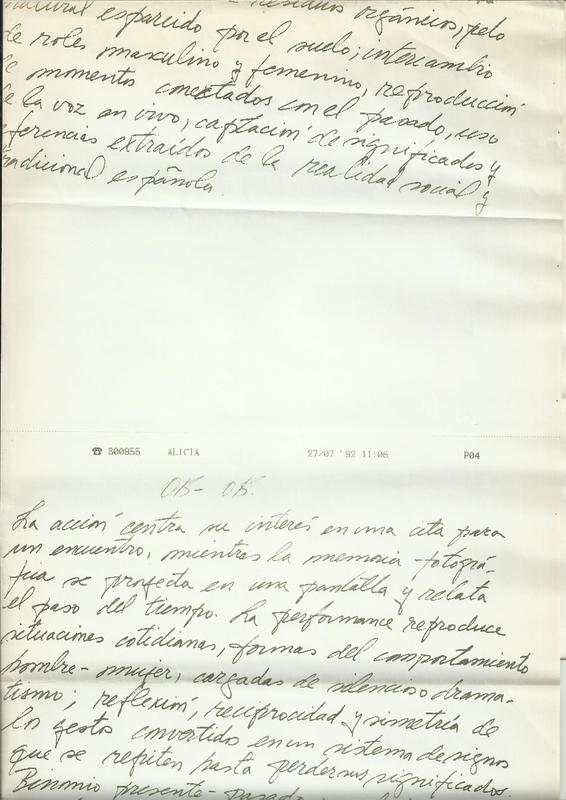 natural esparcido por el suelo; intercambio residuos orgánicos, pelo
de roles masculino y femenino, reproducción
de momentos conectados con el pasado, uso
de la voz en vivo, captación de significados y
referencias extraídos de la realidad social y
tradicional española.
☎ 300955 ALICIA 27/07 '92 11:06 P04
OK- OK.
La acción centra su interés en una cita para
un encuentro, mientras la memoria fotográ-
fica se proyecta en una pantalla y relata
el paso del tiempo. La performance reproduce
situaciones cotidianas, formas del comportamiento
hombre-mujer, cargadas de silencioso drama-
tismo; reflexión, reciprocidad y simetría de
los gestos convertidos en un sistema de signos
que se repiten hasta perder sus significados.
Binomio presente-pasado